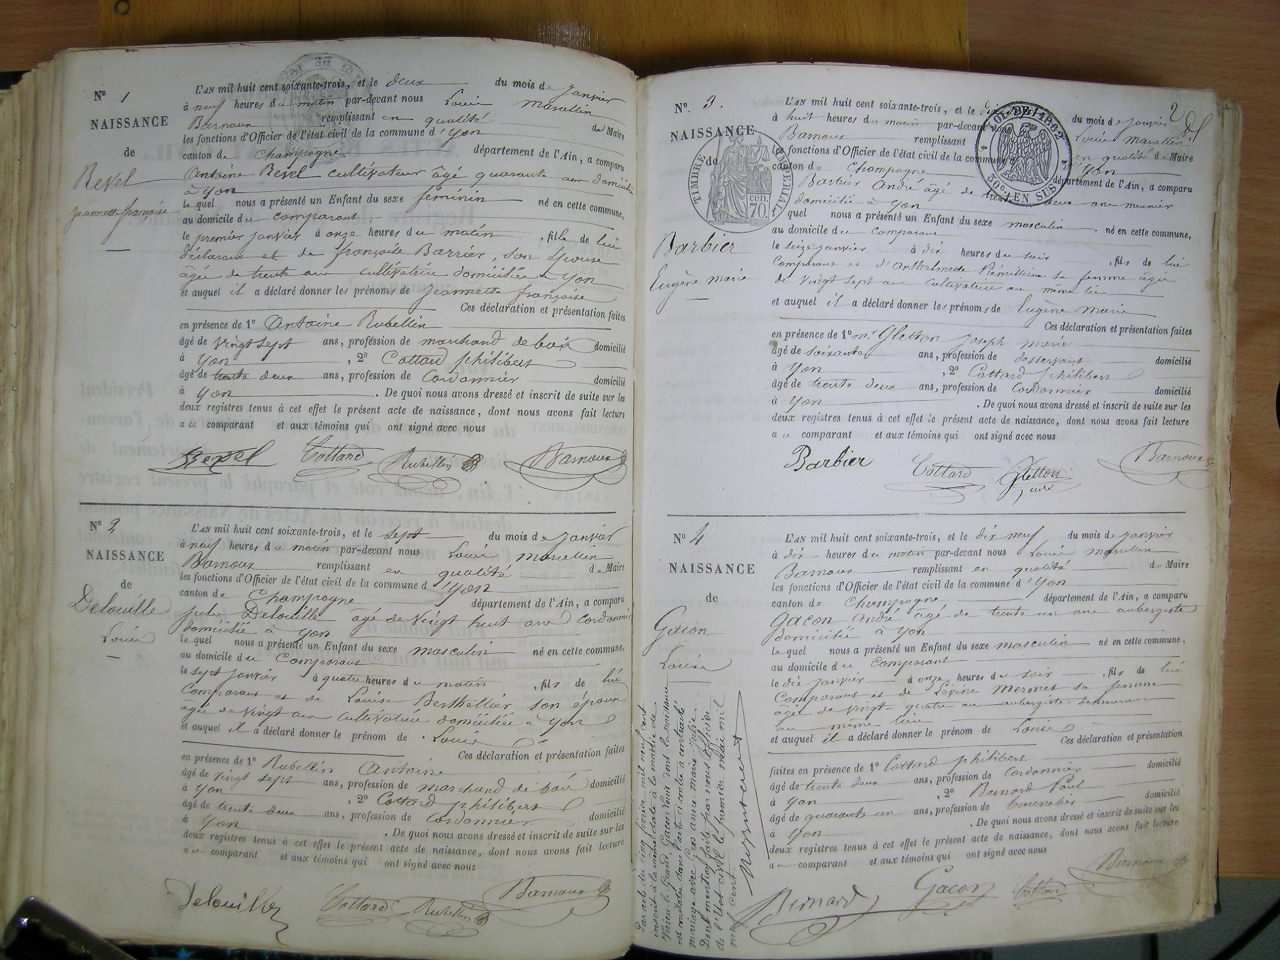 N° 1
NAISSANCE
de
Revel
Jeannette françoise
L'AN mil huit cent soixante-trois, et le deux du mois de Janvier
à neuf heures du matin par-devant nous Louis Marcellin
Barnoux remplissant en qualité de Maire
les fonctions d'Officier de l'état civil de la commune d'Yon
canton de Champagne département de l'Ain, a comparu
Antoine Revel cultivateur âgé quarante ans domicilié
à Yon
le quel nous a présenté un Enfant du sexe féminin né en cette commune,
au domicile du comparant
le premier janvier à onze heures du matin, fille de lui
déclarant et de françoise Barrier, son épouse
âgée de trente ans cultivatrice domiciliée à Yon
et auquel il a déclaré donner les prénoms de Jeannette françoise
Ces déclaration et présentation faites
en présence de 1° Antoine Rubellin
âgé de vingt sept ans, profession de marchand de bois domicilié
à Yon, 2° Cottard philibert
âgé de trente deux ans, profession de Cordonnier domicilié
à Yon. De quoi nous avons dressé et inscrit de suite sur les
deux registres tenus à cet effet le présent acte de naissance, dont nous avons fait lecture
au comparant et aux témoins qui ont signé avec nous
Revel Cottard Rubellin Barnoux
N° 2
NAISSANCE
de
Delouille
Louis
L'AN mil huit cent soixante-trois, et le sept du mois de janvier
à neuf heures du matin par-devant nous Louis Marcellin
Barnoux remplissant en qualité de Maire
les fonctions d'Officier de l'état civil de la commune d'Yon
canton de Champagne département de l'Ain, a comparu
jules Delouille âgé de vingt huit ans cordonnier
domicilié à Yon
le quel nous a présenté un Enfant du sexe masculin né en cette commune,
au domicile du Comparant
le sept janvier à quatre heures du matin, fils de lui
Comparant et de Louise Berthellier son épouse
âgée de vingt ans cultivatrice domiciliée à Yon
et auquel il a déclaré donner le prénom de Louis
Ces déclaration et présentation faites
en présence de 1° Rubellin Antoine
âgé de vingt sept ans, profession de marchand de bois domicilié
à Yon, 2° Cottard philibert
âgé de trente deux ans, profession de Cordonnier domicilié
à Yon. De quoi nous avons dressé et inscrit de suite sur les
deux registres tenus à cet effet le présent acte de naissance, dont nous avons fait lecture
au comparant et aux témoins qui ont signé avec nous
Delouille Cottard Rubellin Barnoux
2
N° 3.
NAISSANCE
de
Barbier
Eugène marie
TIMBRE IMPÉRIAL
70
L'AN mil huit cent soixante-trois, et le du mois de janvier
à huit heures du matin par-devant nous Louis Marcellin
Barnoux remplissant en qualité de Maire
les fonctions d'Officier de l'état civil de la commune d'Yon
canton de Champagne département de l'Ain, a comparu
Barbier André âgé de trente deux ans meunier
domicilié à Yon
le quel nous a présenté un Enfant du sexe masculin né en cette commune,
au domicile du comparant
le seize janvier à dix heures du soir, fils de lui
Comparant et d' sa femme âgée
de vingt sept ans cultivatrice au même lieu
et auquel il a déclaré donner les prénoms de Eugène marie
Ces déclaration et présentation faites
en présence de 1° mr Gletton joseph marie
âgé de soixante ans, profession de desservant domicilié
à Yon, 2° Cottard philibert
âgé de trente deux ans, profession de Cordonnier domicilié
à Yon. De quoi nous avons dressé et inscrit de suite sur les
deux registres tenus à cet effet le présent acte de naissance, dont nous avons fait lecture
au comparant et aux témoins qui ont signé avec nous
Barbier Cottard Gletton Barnoux
curé
N° 4
NAISSANCE
de
Gacon
Louis
L'AN mil huit cent soixante-trois, et le dix neuf du mois de janvier
à dix heures du matin par-devant nous Louis Marcellin
Barnoux remplissant en qualité de Maire
les fonctions d'Officier de l'état civil de la commune d'Yon
canton de Champagne département de l'Ain, a comparu
Gacon André âgé de trente un ans aubergiste
domicilié à Yon
le quel nous a présenté un Enfant du sexe masculin né en cette commune,
au domicile du Comparant
le dix janvier à onze heures du soir, fils de lui
Comparant et de Mermet sa femme
âgée de vingt quatre ans aubergiste demeurant
au même lieu
et auquel il a déclaré donner le prénom de Louis
Ces déclaration et présentation
faites en présence de 1° Cottard philibert
âgé de trente deux ans, profession de Cordonnier domicilié
à Yon, 2° Bernard Paul
âgé de quarante ans, profession de domicilié
à Yon. De quoi nous avons dressé et inscrit de suite sur les
deux registres tenus à cet effet le présent acte de naissance, dont nous avons fait lecture
au comparant et aux témoins qui ont signé avec nous
Bernard Gacon Cottard Barnoux